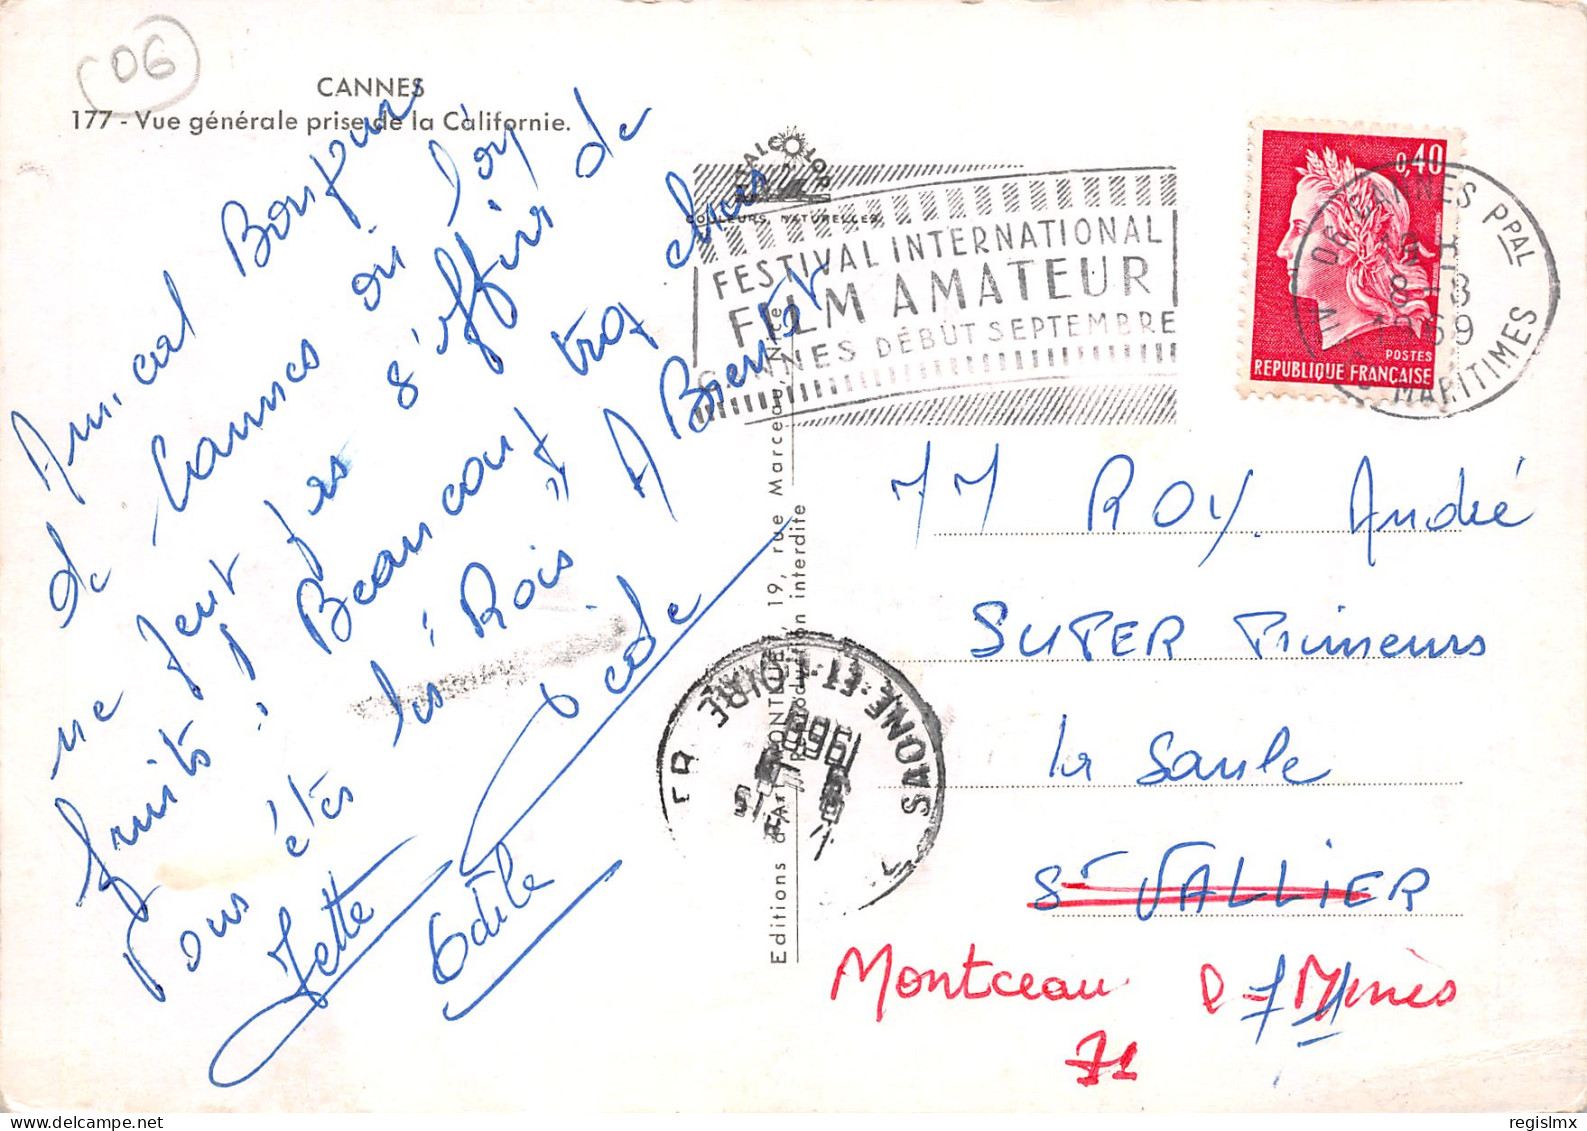 06
CANNES
177 - Vue générale prise de la Californie.
Amical Bonjour
de Cannes où l'on
ne peut pas s'offrir de
fruits! Beaucoup trop chers
Vous êtes les "Rois" A Bientôt
Jette
Odile
COULEURS NATURELLES
FESTIVAL INTERNATIONAL
FILM AMATEUR
CANNES DÉBUT SEPTEMBRE
0,40
POSTES
RÉPUBLIQUE FRANÇAISE
06 CANNES PPAL
1969
MARITIMES
Editions d'Art MONTLUET, 19, rue Marceau, Nice
Reproduction interdite
SAONE-ET-LOIRE
1969
77 ROY. André
SUPER Primeurs
La Saule
St VALLIER
Montceau l-Mines
71
71
regislmx